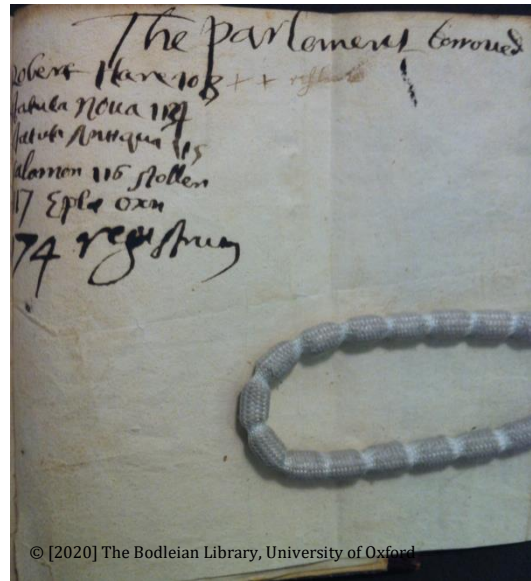 The parlement borroued
Robert Hare 108 + +
Statuta Noua 114
Statuta Antiqua 115
Salomon 116 stollen
117 Eple oxn
174 registrum
© [2020] The Bodleian Library, University of Oxford